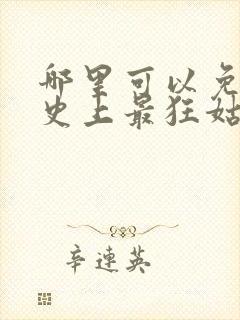 哪里可以免
史上最狂姑
辛連英